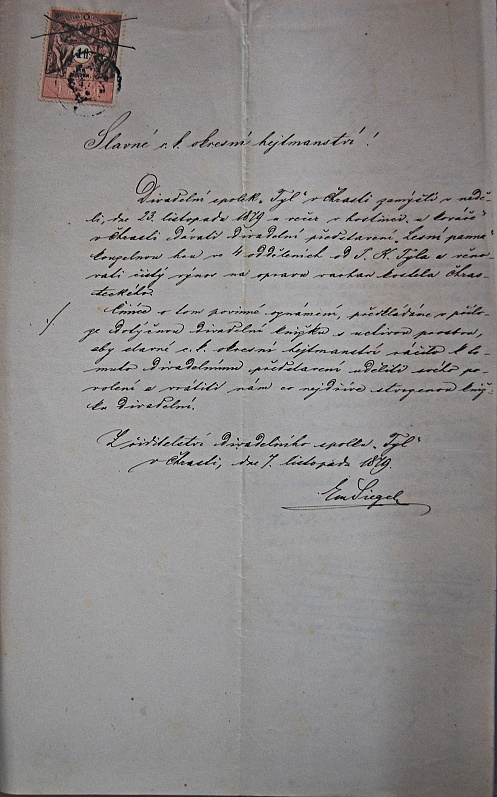 Slavné c. k. okresní hejtmanství!
Divadelní spolek „Tyl“ v Chrasti zamýšlí v nedě-
li, dne 23. listopadu 1879 u večer v hostinci „u Kováře“
v Chrasti dávati divadelní představení „Lesní panna“
kouzelnou hru ve 4 odděleních od J. K. Tyla a věno-
vati čistý výnos na opravu varhan kostela Chras-
teckého.
Činíce o tom povinné oznámení, předkládáme v přílo-
./. ze dotyčnou divadelní knížku s uctivou prosbou,
aby slavné c. k. okresní hejtmanství ráčilo k to-
muto divadelnímu představení uděliti své po-
volení a vrátiti nám co nejdříve kníž-
ku divadelní.
Z ředitelství divadelního spolku „Tyl“
v Chrasti, dne 7. listopadu 1879.
Em Siegel